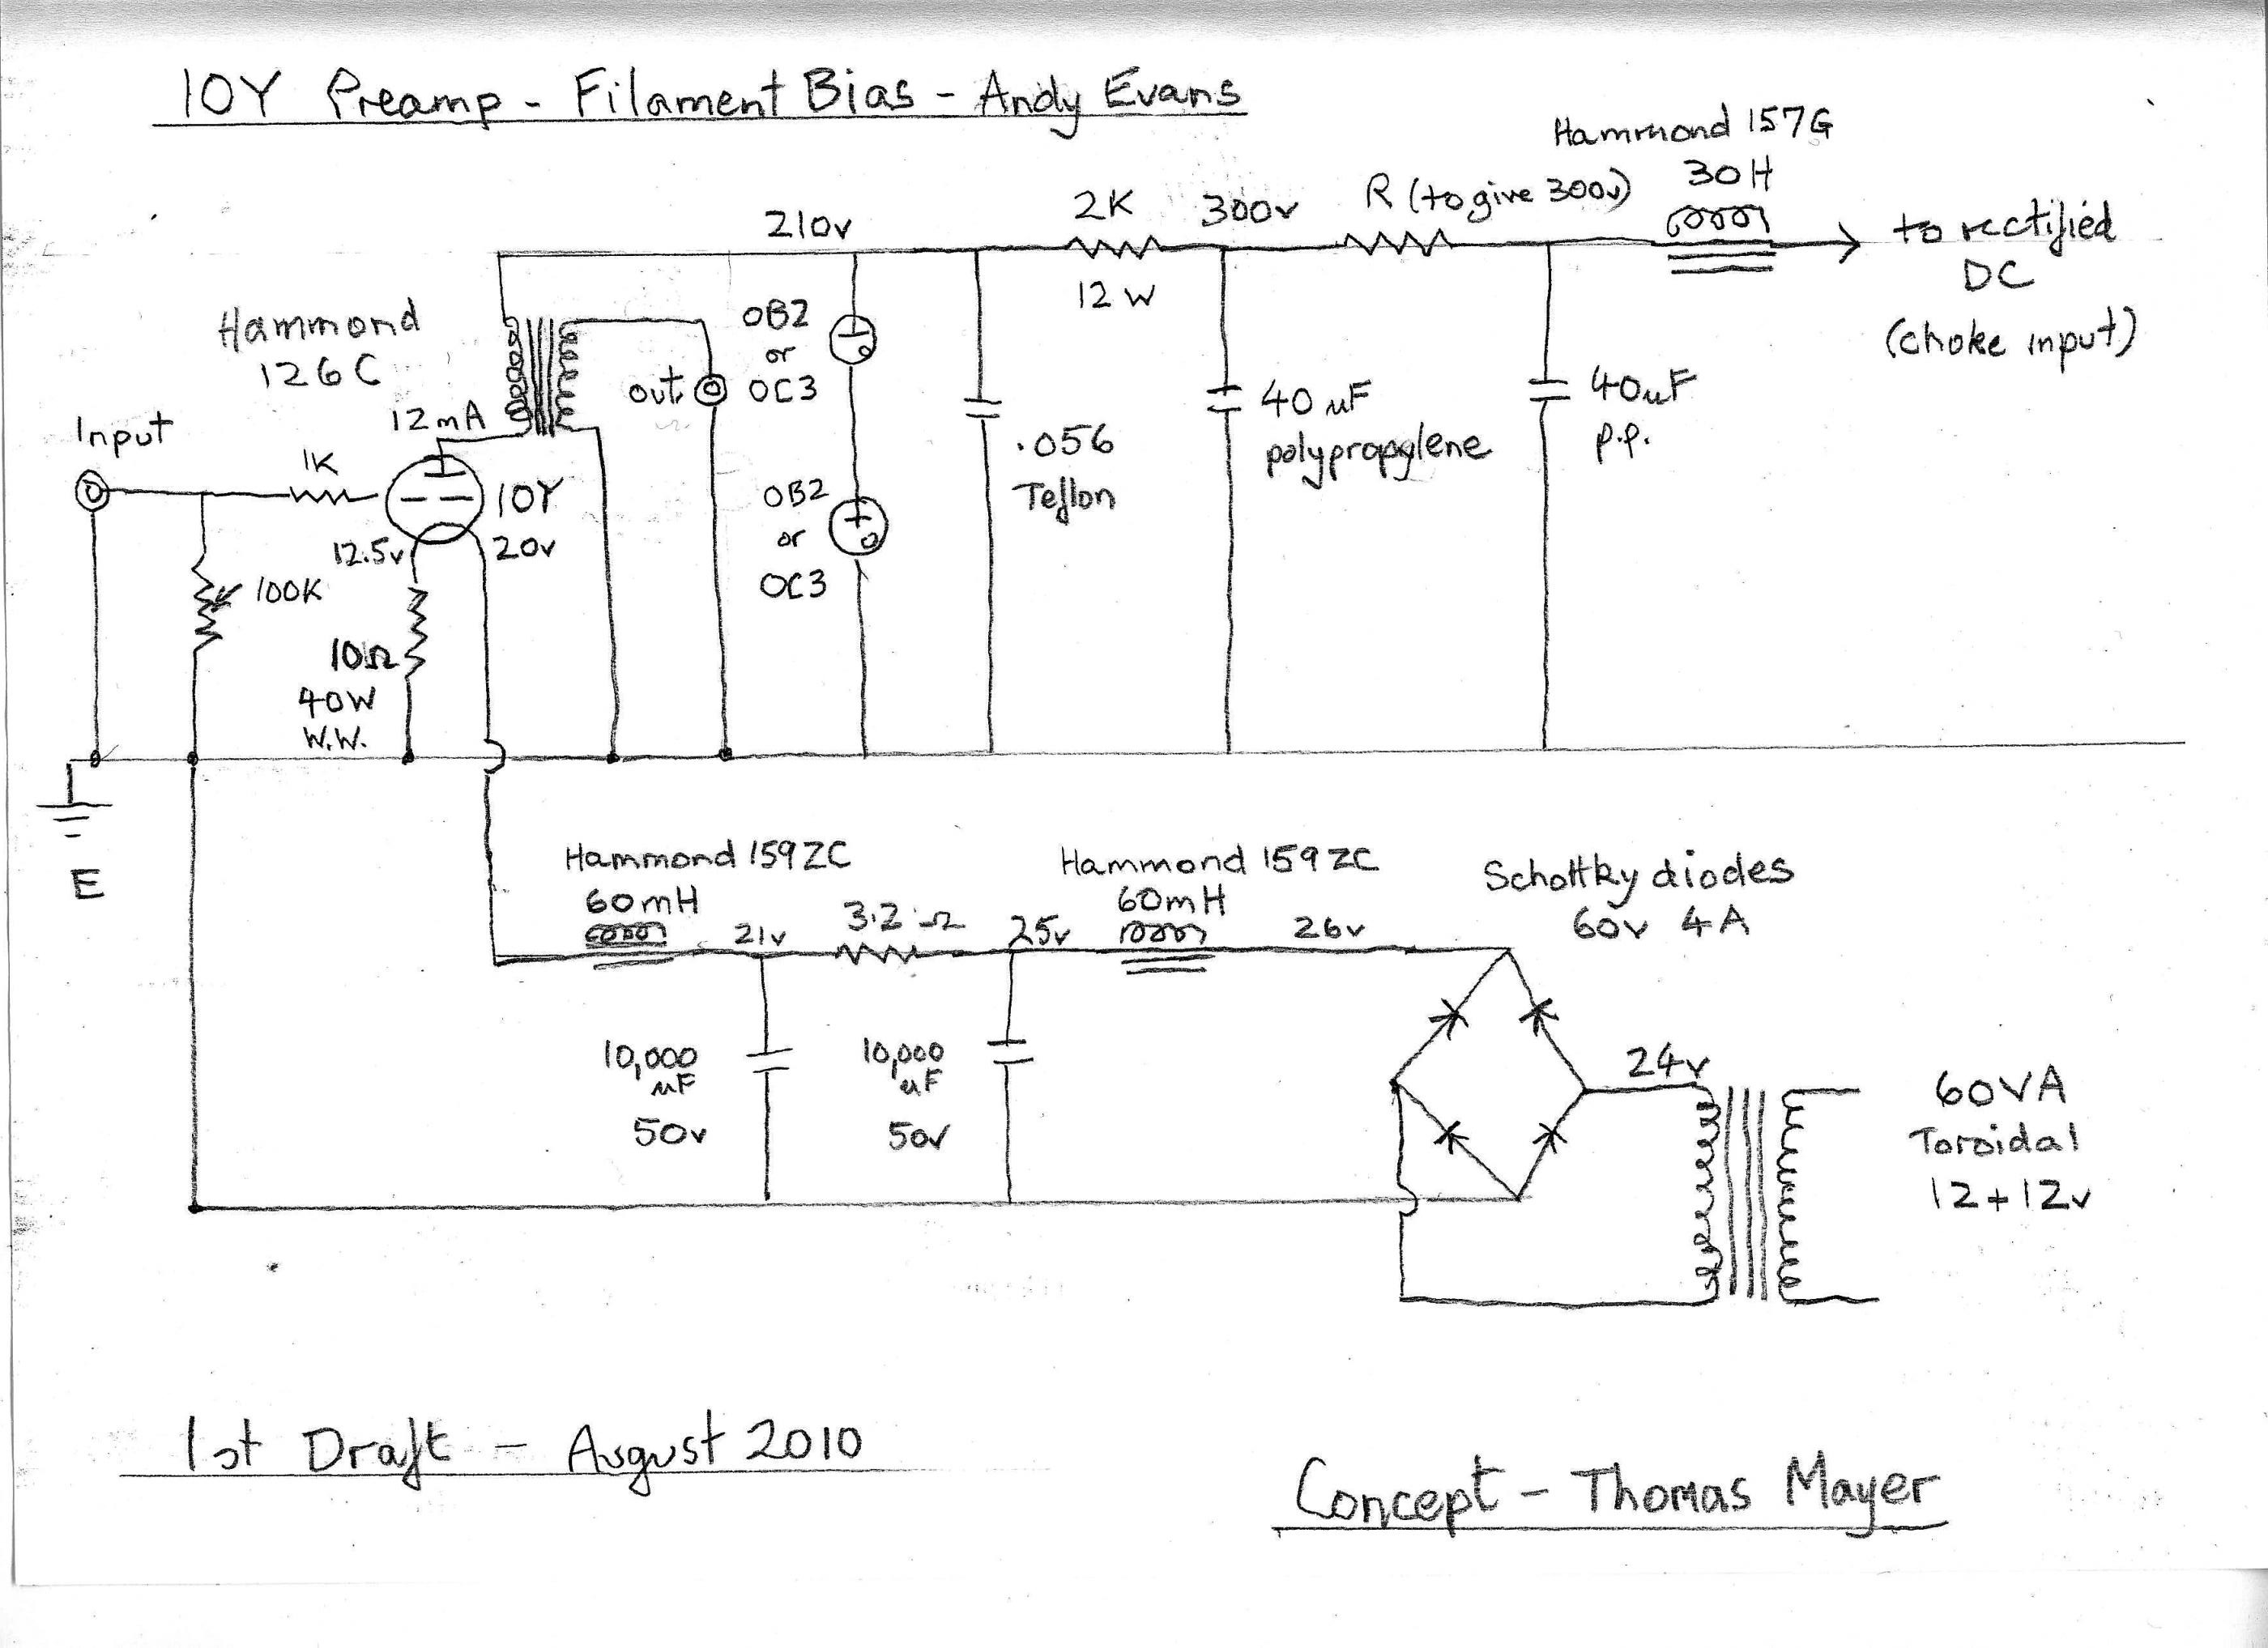 10Y Preamp - Filament Bias - Andy Evans
Hammond 157G
30H
R (to give 300v)
2K
300v
210v
12 W
to rectified
DC
(choke input)
Hammond
126C
12mA
Input
1K
10Y
12.5v
20v
100K
10Ω
40W
W.W.
out
OB2
or
OC3
OB2
or
OC3
.056
Teflon
40 uF
polypropylene
40uF
p.p.
E
Hammond 159ZC
60mH
21v
3.2 Ω
25v
Hammond 159ZC
60mH
26v
Schottky diodes
60v 4A
10,000
uF
50v
10,000
uF
50v
24v
60VA
Toroidal
12+12v
1st Draft - August 2010
Concept - Thomas Mayer